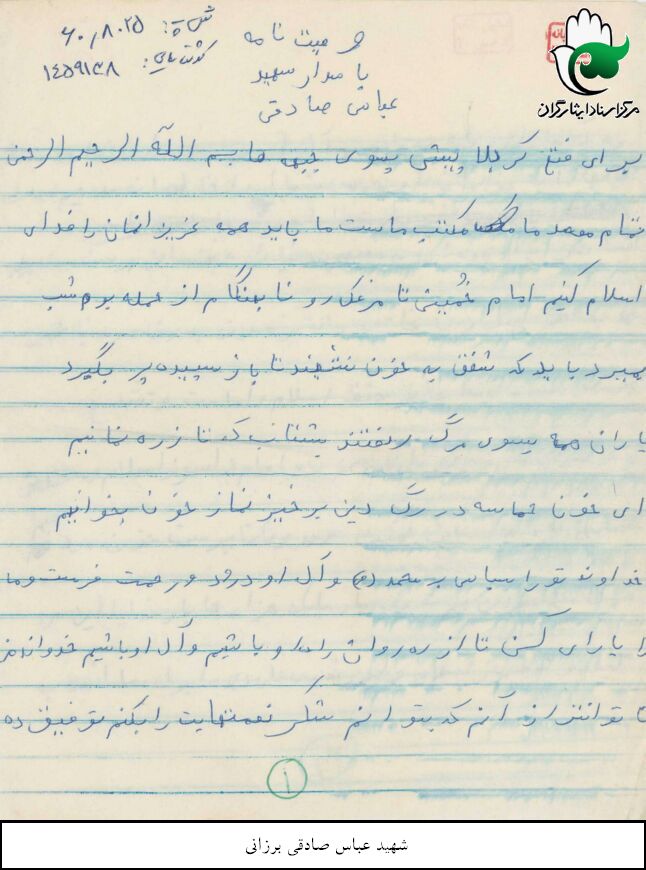 وصیت نامه
پاسدار شهید
عباس صادقی
ش پ: ۶۰٫۸۰۲۵
کد شناسایی: ۱۴۵۹۱۳۸
مرکز اسناد ایثارگران
برای فتح کربلا پیش بسوی جبهه ها بسم الله الرحیم الرحمن
تمام مقصد ما مکتب ماست ما باید همه عزیزانمان را فدای
اسلام کنیم امام خمینی تا مرغک رو نا بهنگام از حمله بر شب
بمیرد باید که شفق به خون نشیند تا باز سپیده پر بگیرد
یاران همه بسوی مرگ رفتند بشتاب که تا ز ره نمانیم
ای خون حماسه در رگ دین برخیز نماز خون بخوانیم
خداوند تو را سپاس بر محمد (ص) و آل او درود و رحمت فرست و ما
را یارای کن تا از ره روان راه او باشیم و آل او باشیم خداوند من
نا توانتر از آنم که بتوانم شکر نعمتهایت را بکنم توفیق ده
۱
شهید عباس صادقی برزانی